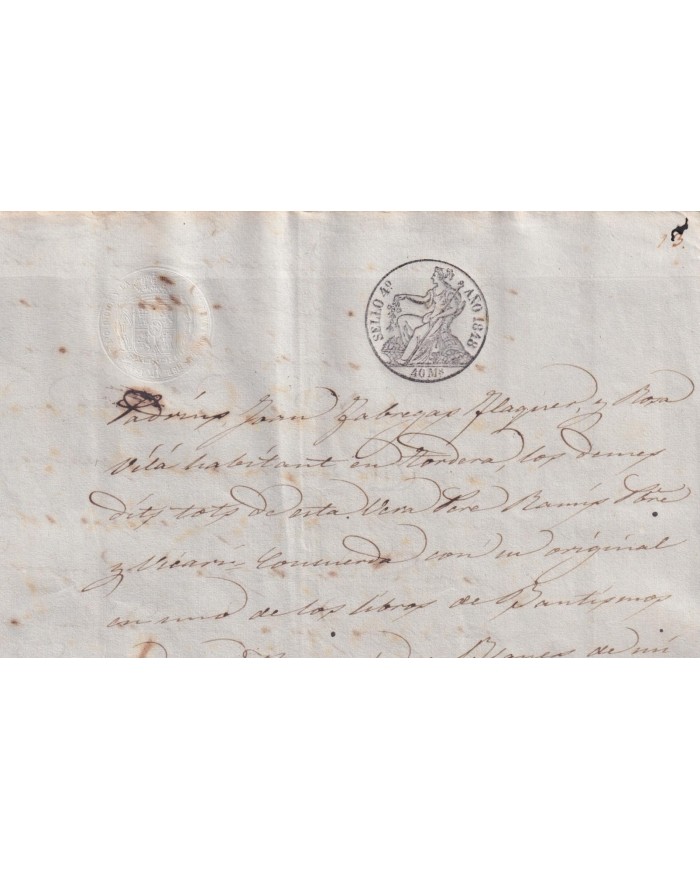 13.
SELLO 4º AÑO 1848
40 Ms
Padrins Joan Fabregas Flaquer, y Rosa
Vilá habitant en Tordera, los demes
dits tots de esta. Vera Pere Ramis Pbre
y Vicari Concuerda con su original
en uno de los libros de Bautismos
de mi